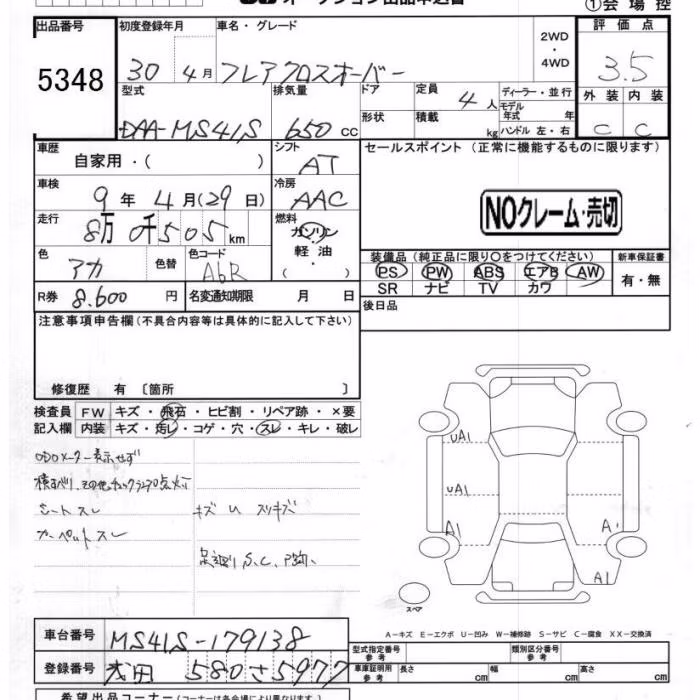 オークション出品申込書
①会場控
出品番号 初度登録年月 車名・グレード 2WD・4WD 評価点
5348 30年 4月 フレアクロスオーバー 3.5
型式 排気量 ドア 定員 4人 ディーラー・並行 外装 内装
DAA-MS41S 650cc 形状 積載 kg モデル年式 年 C C
ハンドル 左・右
車歴 自家用・( ) シフト AT セールスポイント (正常に機能するものに限ります)
車検 9年 4月(29日) 冷房 AAC
NOクレーム・売切
走行 8万0千505km 燃料 ガソリン 軽油 ・( )
色 アカ 色替 色コード 装備品 (純正品に限り○をつけてください) 新車保証書
PS PW ABS エアB AW 有・無
SR ナビ TV カワ
R券 8,600円 名変通知期限 月 日 後日品
注意事項申告欄(不具合内容等は具体的に記入して下さい)
修復歴 有 〔箇所 〕
検査員 FW キズ・飛石・ヒビ割・リペア跡・×要
記入欄 内装 キズ・汚レ・コゲ・穴・スレ・キレ・破レ
ODOメーター表示せず
横すべり、その他チェックランプ点灯
シートスレ キズ U スリキズ
カーペットスレ
足廻りS、C、
UA1
UA1
A1 A1
A1
スペア
A-キズ E-エクボ U-凹み W-補修跡 S-サビ C-腐食 XX-交換済
車台番号 MS41S-179138 型式指定番号 参考 類別区分番号 参考
登録番号 580さ5977 車庫証明用 参考 長さ cm 幅 cm 高さ cm
希望出品コーナー (コーナーは各会場により異なります)